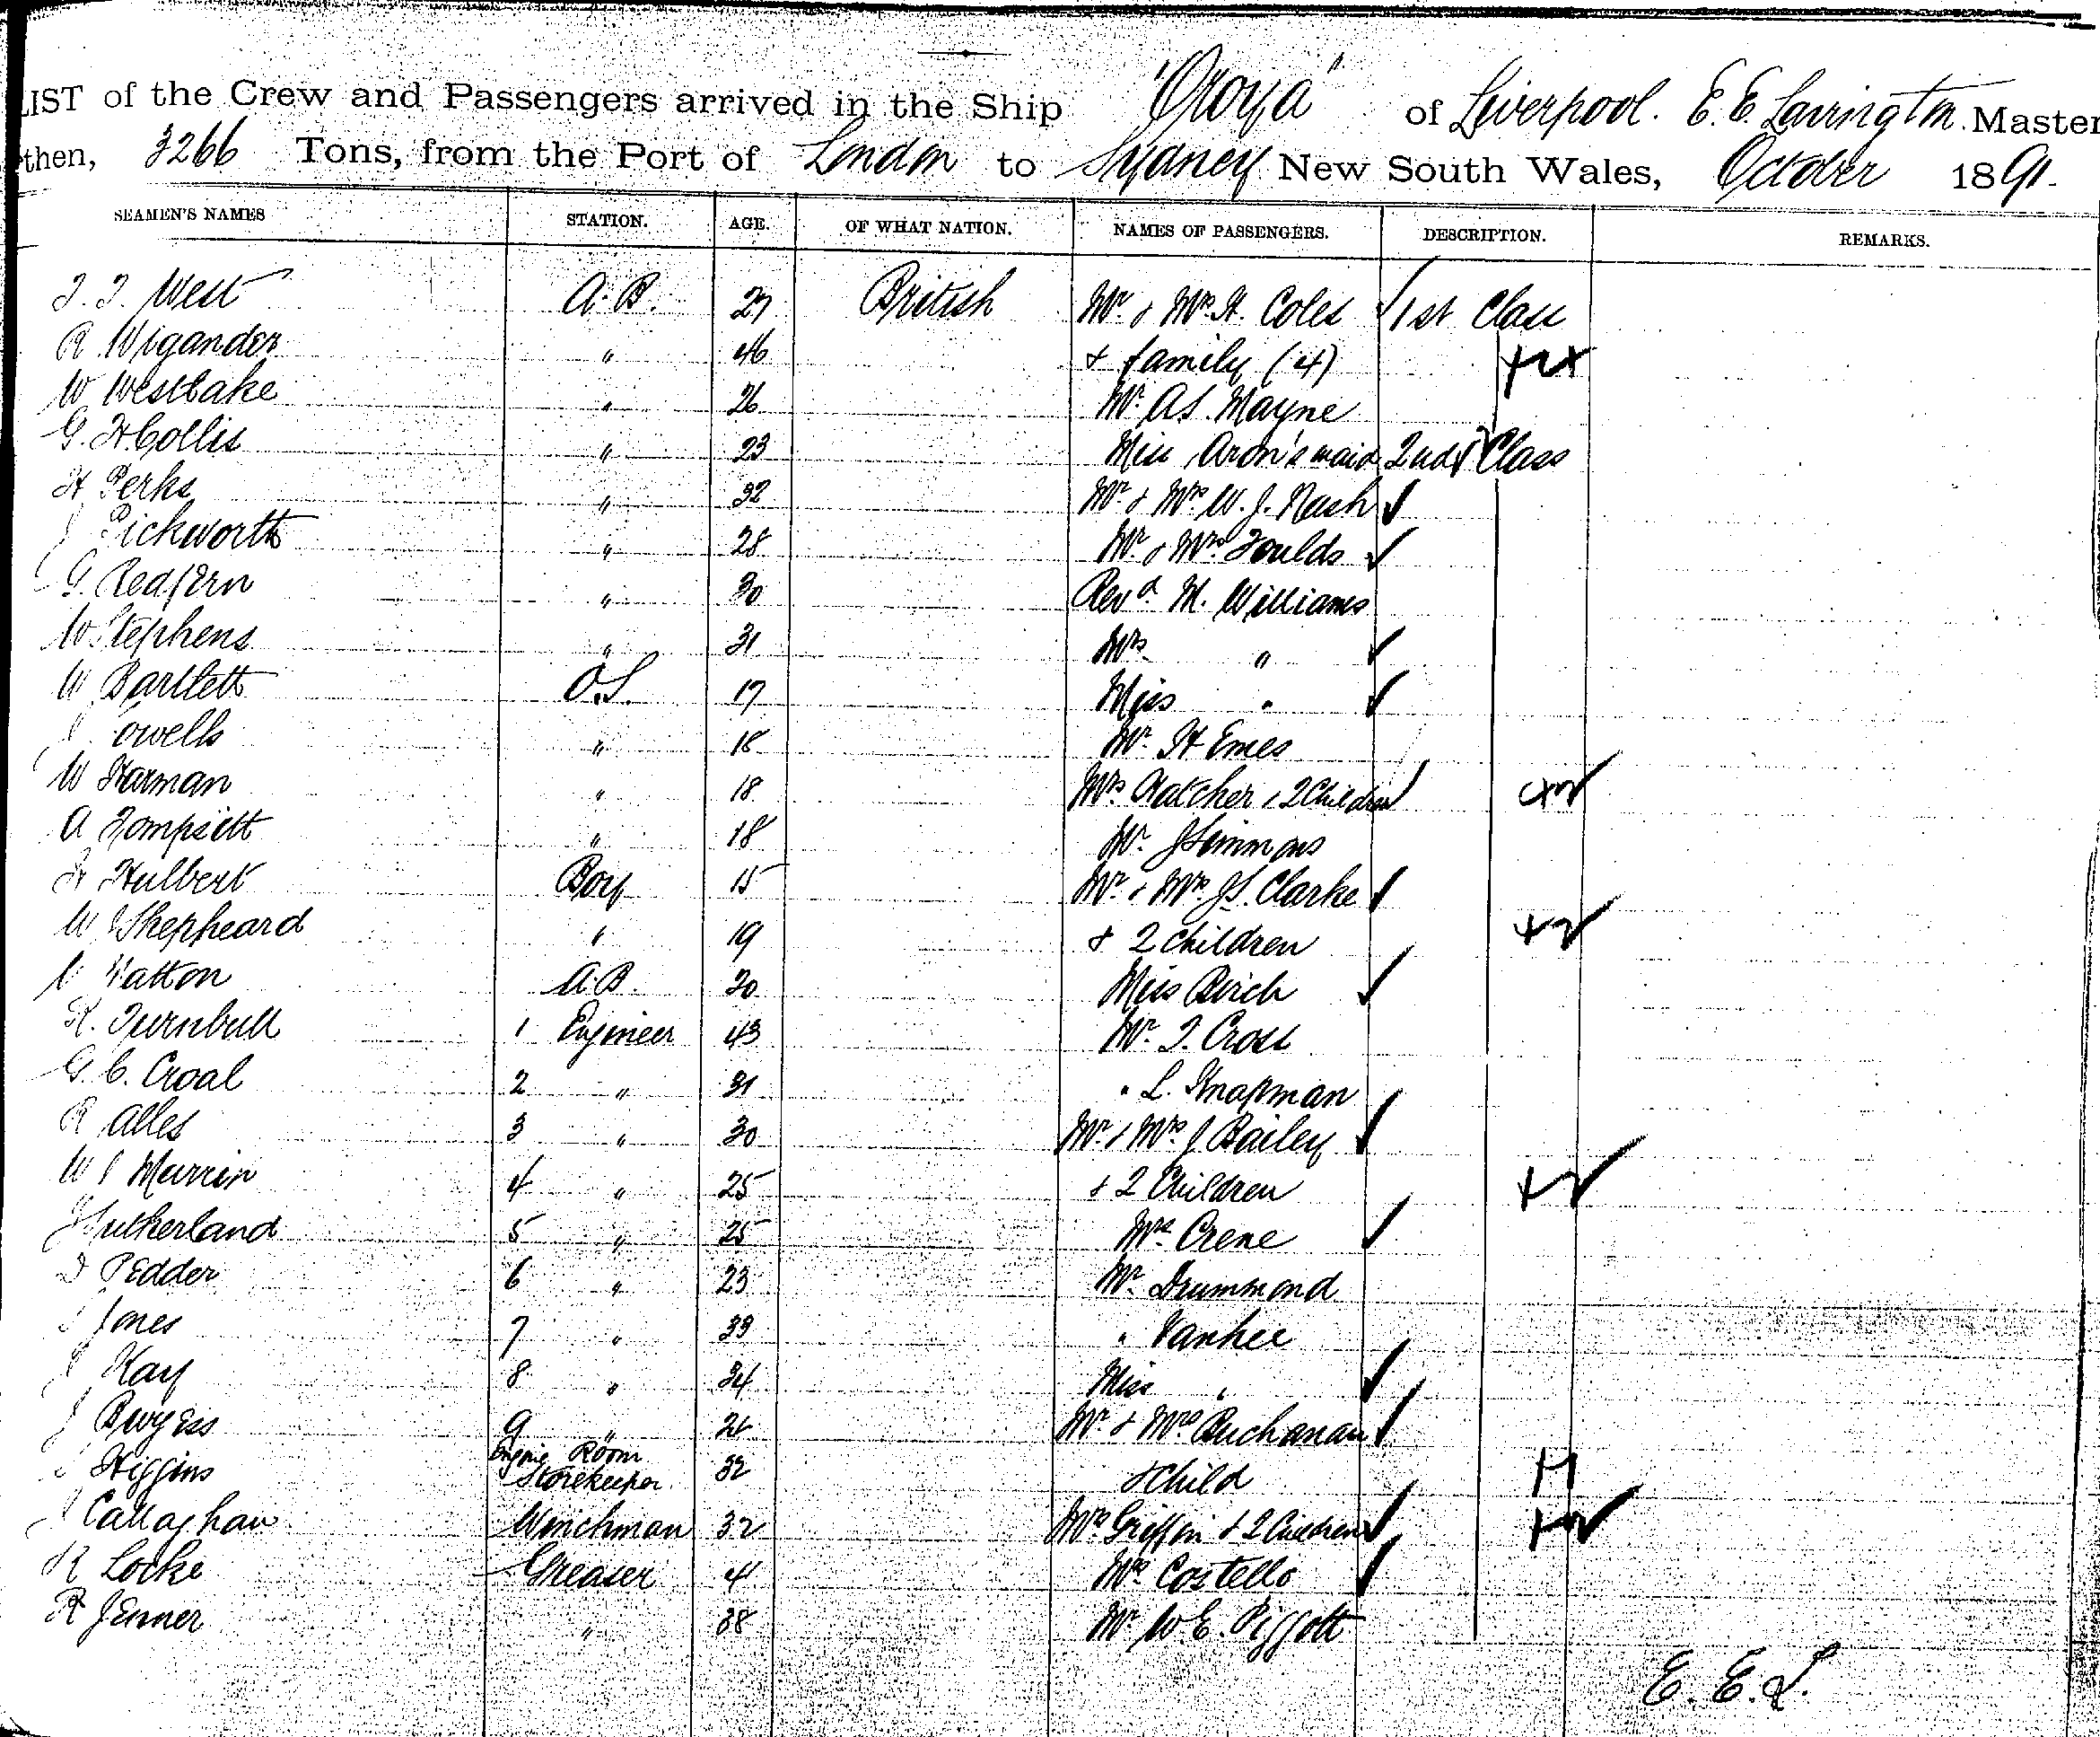 LIST of the Crew and Passengers arrived in the Ship "Oroya" of Liverpool. E. E. Lavington. Master
then, 3266 Tons, from the Port of London to Sydney New South Wales, October 1891.
SEAMEN'S NAMES STATION. AGE. OF WHAT NATION. NAMES OF PASSENGERS. DESCRIPTION. REMARKS.
West A.B. 27 British Mr & Mrs H. Coles 1st Class
R Wigander " 46 & family (4)
W Westlake " 26 Mr A.S. Mayne
G. H Collis " 23 Miss Aron's maid 2nd Class
H Perks " 32 Mr & Mrs W. J. Nash
J Pickworth " 28 Mr & Mrs Foulds
G. Redfern " 30 Revd M. Williams
W Stephens " 31 Mrs "
W Bartlett O.S. 17 Miss "
" 18 Mr H Emes
W Harman " 18 Mrs Hatcher & 2 Children
A Tompsett " 18 Mr J Simmons
H Hulbert Boy 15 Mr & Mrs J S. Clarke
W Shepheard " 19 & 2 children
A.B. 30 Miss Birch
R. Turnbull 1 Engineer 43 Mr T. Cross
G. C. Croal 2 " 31 " L. Knapman
R Alles 3 " 30 Mr & Mrs J Bailey
W 4 " 25 & 2 Children
J Sutherland 5 " 25 Mrs Crene
Pedder 6 " 23 Mr Drummond
Jones 7 " 33 " Yankee
Kay 8 " 34 Miss "
J Burgess 9 " Mr & Mrs Buchanan
Higgins Engine Room Storekeeper 32 & Child
J Callaghan Winchman 32 Mrs Griffin & 2 Children
R Locke Greaser 41 Mrs Costello
R Jenner " 38 Mr W. E. Piggott
E. E. L.